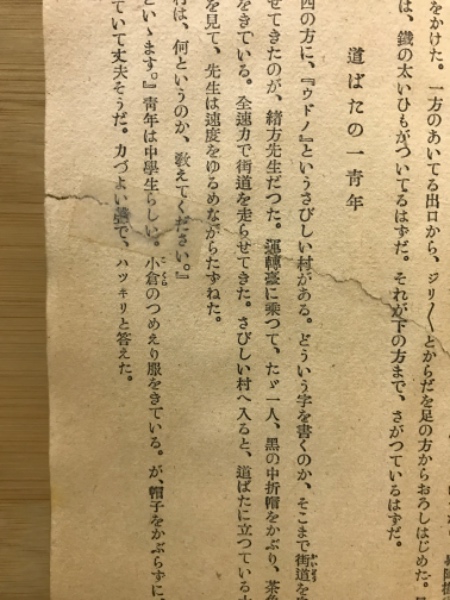 をかけた。一方のあいてる出口から、ジリ〳〵とからだを足の方からおろしはじめた。
は、鐵の太いひもがついてるはずだ。それが下の方まで、さがつているはずだ。
道ばたの一青年
四の方に、『ウドノ』というさびしい村がある。どういう字を書くのか、そこまで街道を
せてきたのが、緒方先生だつた。運轉臺に乘つて、たゞ一人、黑の中折帽をかぶり、茶色
をきている。全速力で街道を走らせてきた。さびしい村へ入ると、道ばたに立つている
を見て、先生は速度をゆるめながらたずねた。
村は、何というのか、敎えてください。』
といゝます。』靑年は中學生らしい。小倉のつめえり服をきている。が、帽子をかぶらずに、
ていて丈夫そうだ。力づよい聲で、ハツキリと答えた。